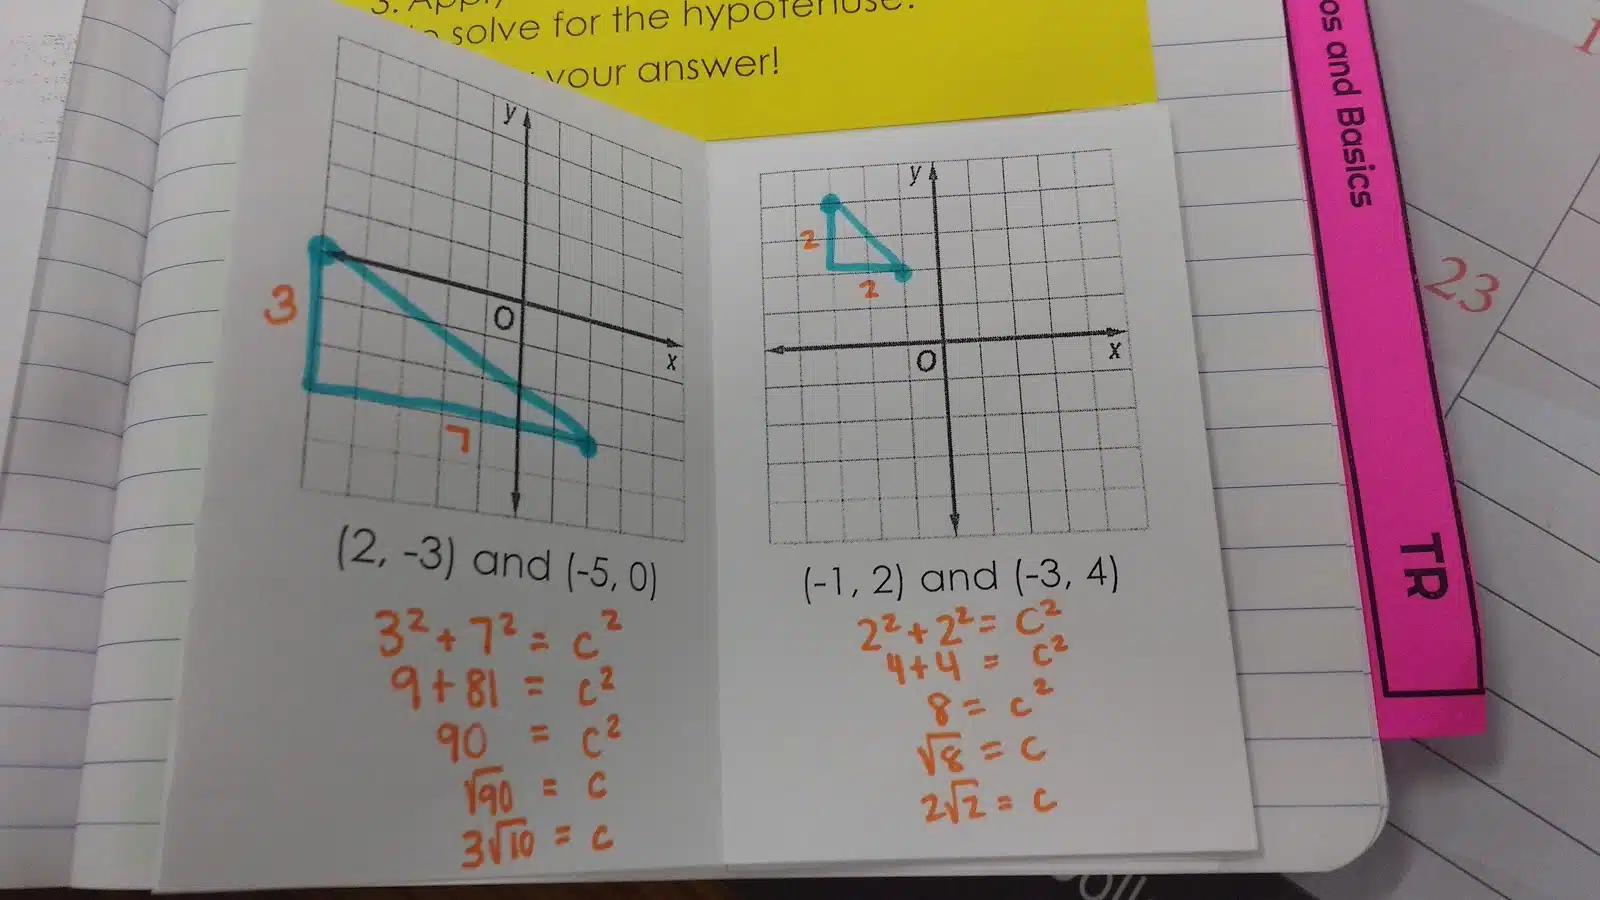 3. Apply
to solve for the hypotenuse.
your answer!
y
O
x
3
7
(2, -3) and (-5, 0)
3² + 7² = c²
9 + 81 = c²
90 = c²
√90 = c
3√10 = c
y
O
x
2
2
(-1, 2) and (-3, 4)
2² + 2² = c²
4 + 4 = c²
8 = c²
√8 = c
2√2 = c
os and Basics
TR
23
1